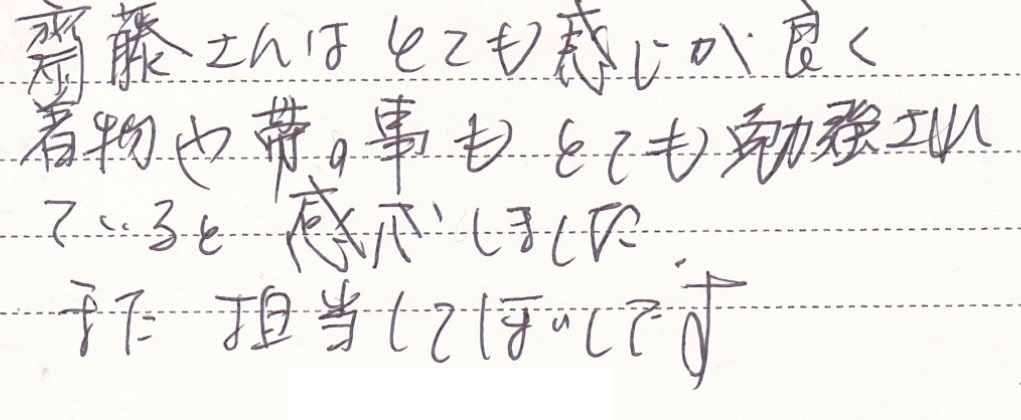 齋藤さんはとても感じが良く
着物や帯の事もとても勉強され
ていると感心しました
また担当してほしいです